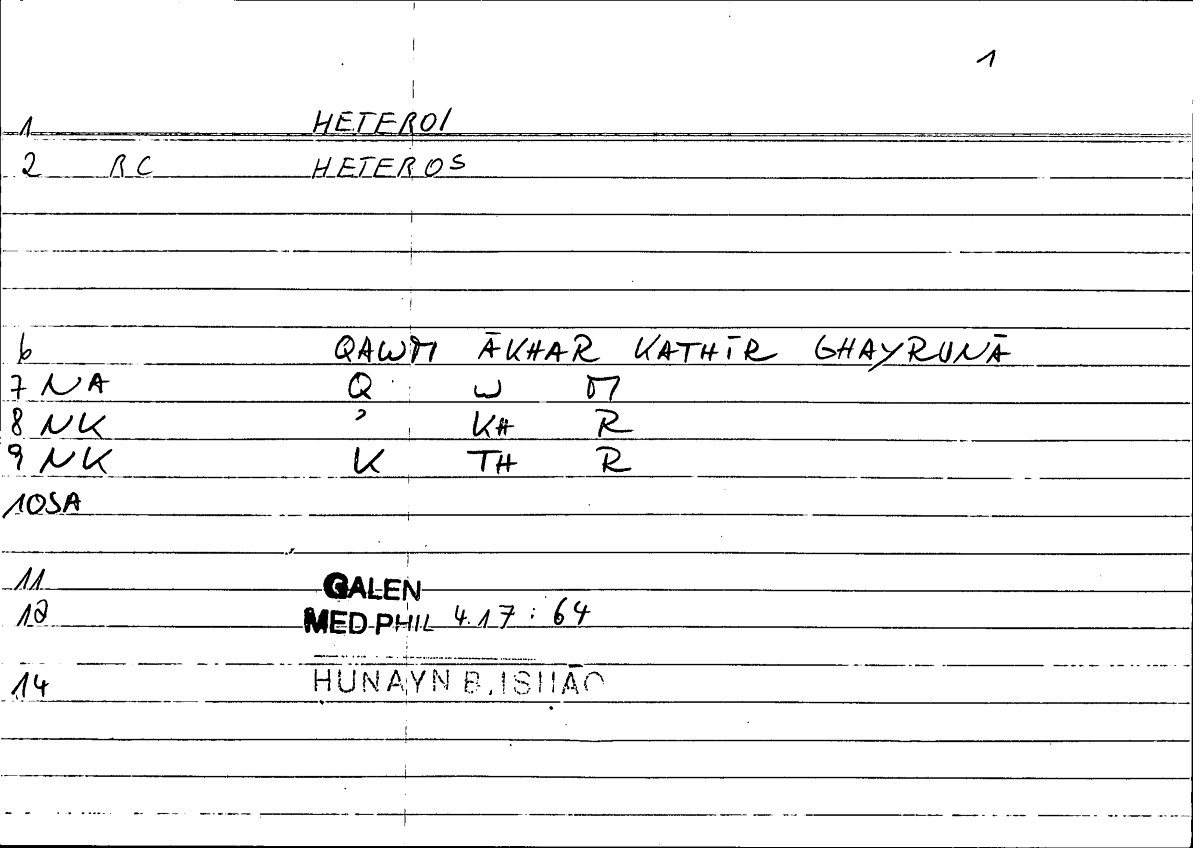 1
1 HETEROI
2 RC HETEROS
6 QAWM ĀKHAR KATHĪR GHAYRUNĀ
7 NA Q W M
8 NK ʾ KH R
9 NK K TH R
10 SA
11 GALEN
12 MED.PHIL 4.17 : 64
14 HUNAYN B. ISḤĀQ